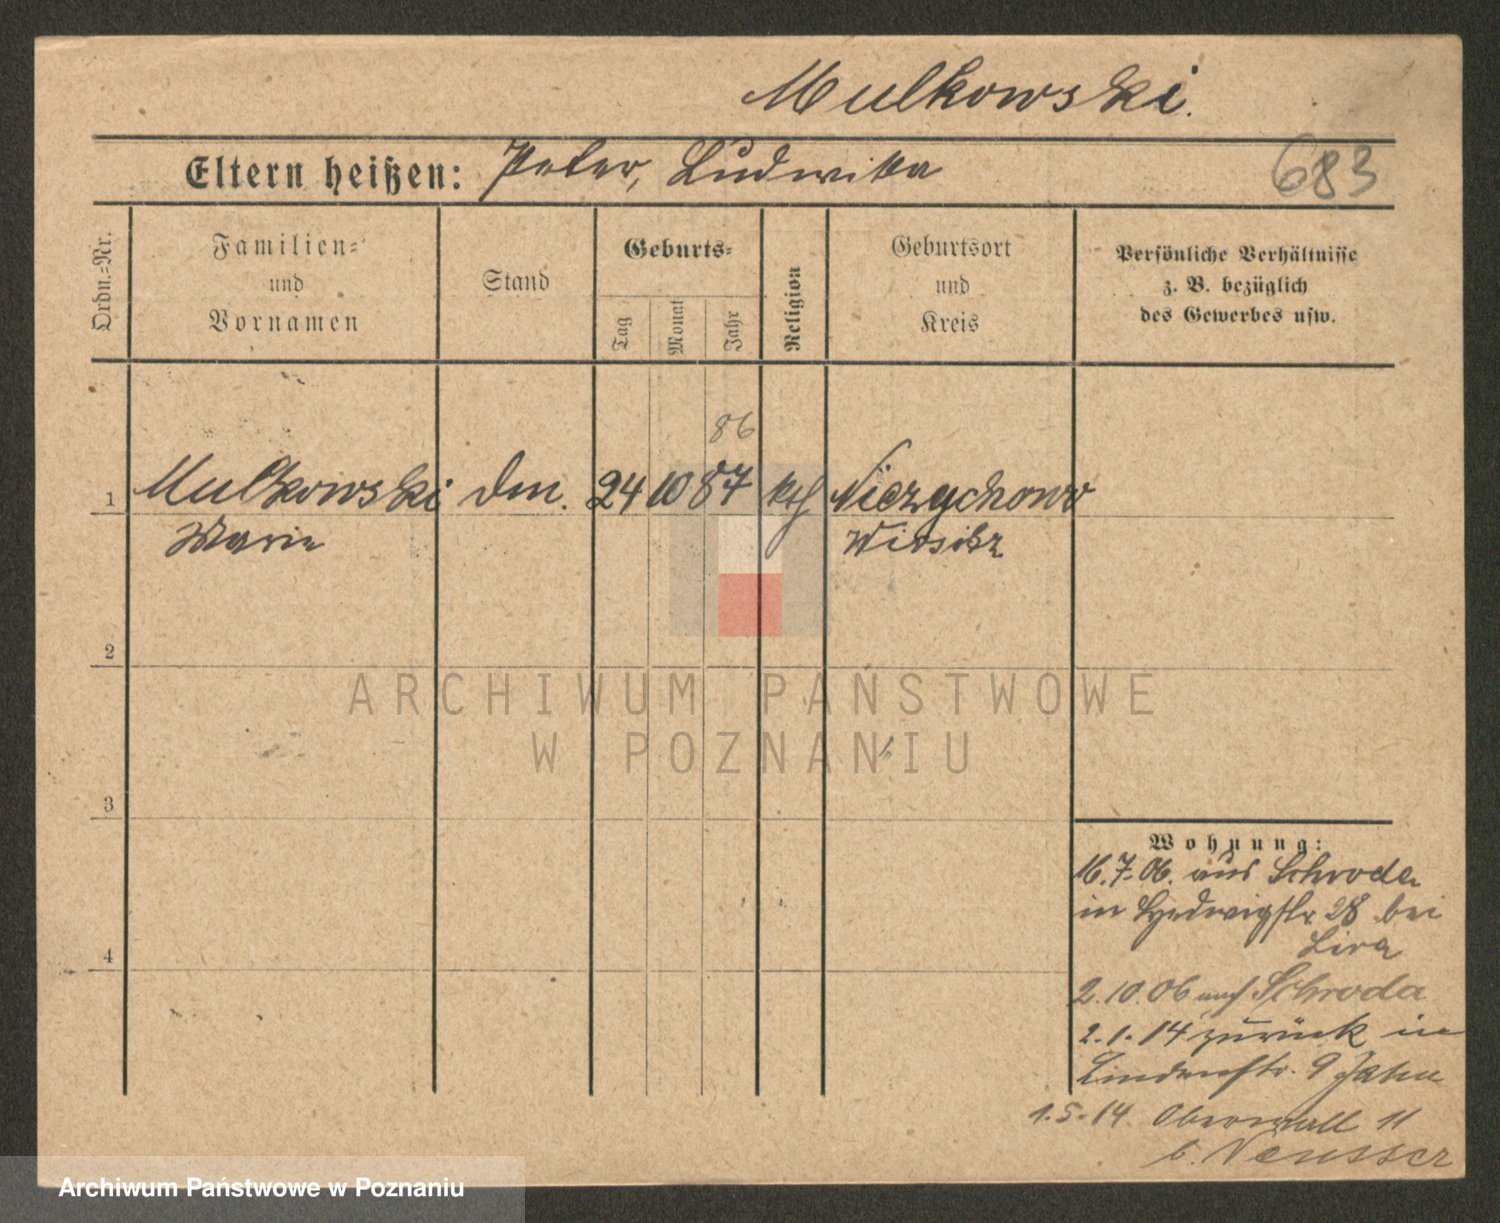 Mulkowski.
Eltern heißen: Peter, Ludwika
683
Ordn.=Nr.
Familien=
und
Vornamen
Stand
Geburts=
Tag
Monat
Jahr
Religion
Geburtsort
und
Kreis
Persönliche Verhältnisse
z. B. bezüglich
des Gewerbes usw.
86
1 Mulkowski 24 10 87 kth Niezychowo
Marie Wirsitz
2
ARCHIWUM PAŃSTWOWE
W POZNANIU
3
Wohnung:
16.7.06. aus Schroda
in Hedwigstr. 28 bei
Lira
4
2.10.06 nach Schroda
2.1.14 zurück in
Lindenstr. 9 Jahn
1.5.14. Oberwall 11
b.
Archiwum Państwowe w Poznaniu